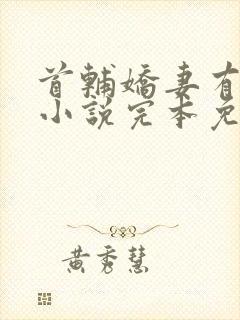 首輔嬌妻有
小說完本免
黃秀慧